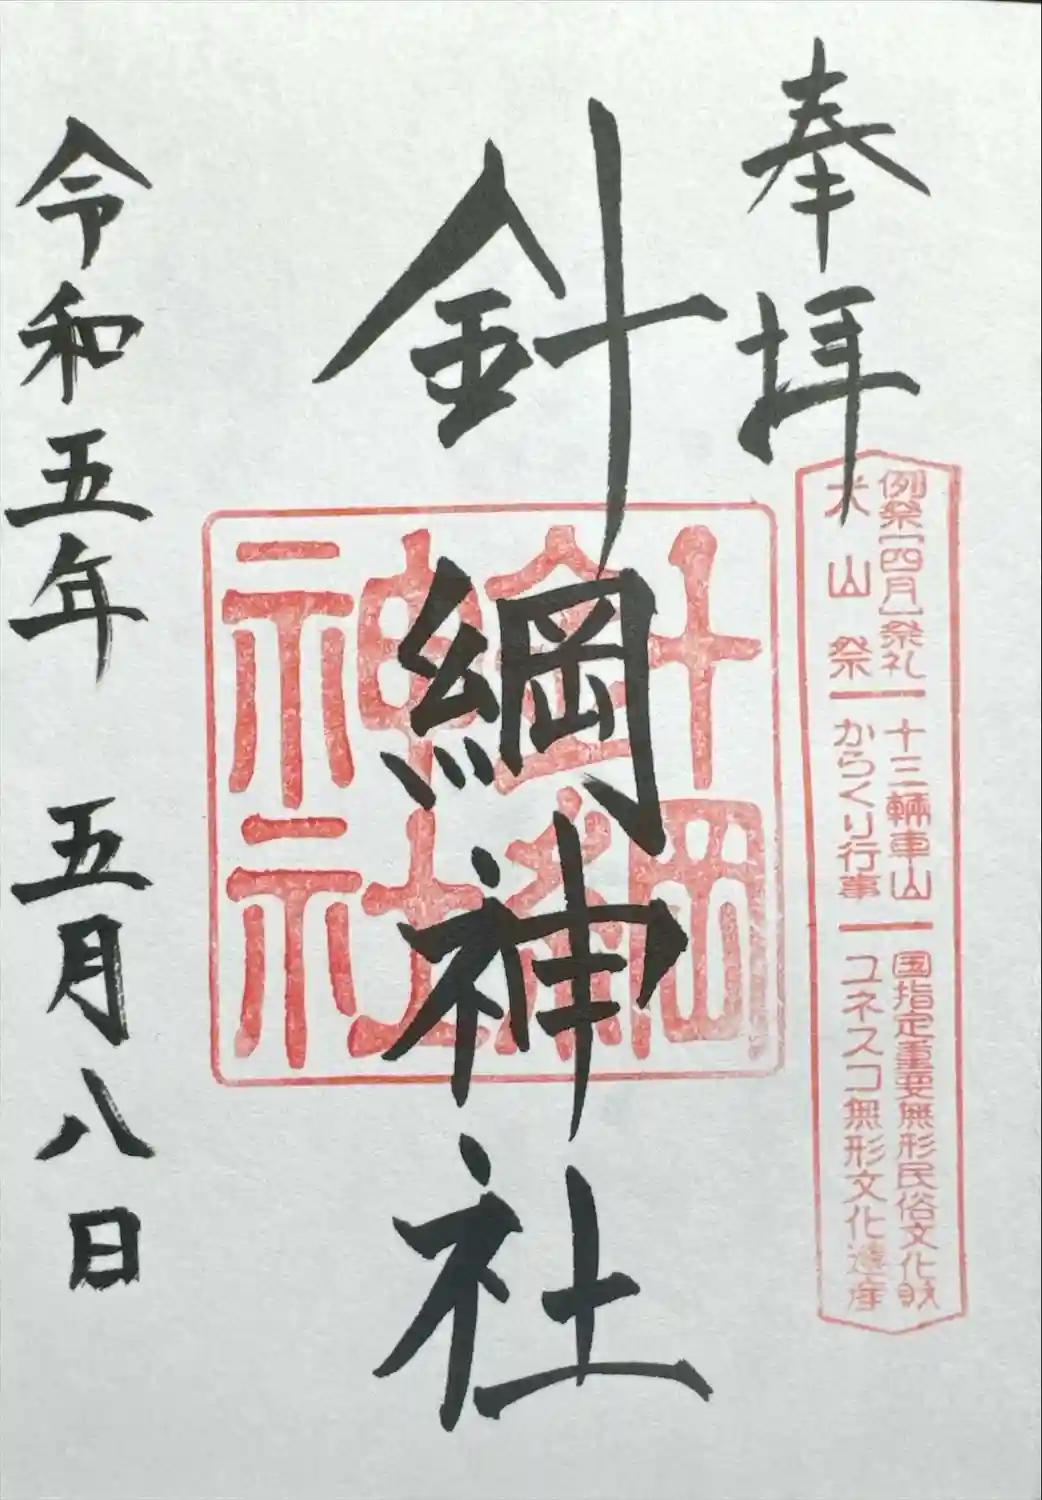 奉拝
例祭[四月]祭礼 十三輛車山 国指定重要無形民俗文化財
犬山祭 からくり行事 ユネスコ無形文化遺産
針綱神社
針綱
神社
令和五年 五月八日